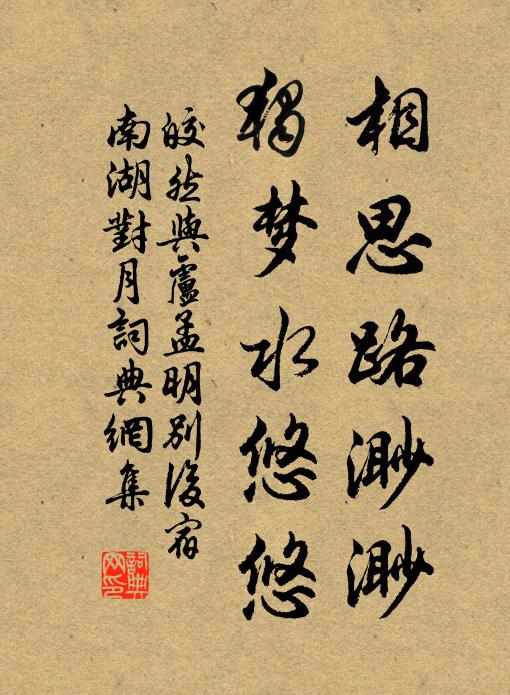 相思路渺渺
獨梦水悠悠
皎然與盧孟明別後宿
南湖對月詞典網集
詞典
网印